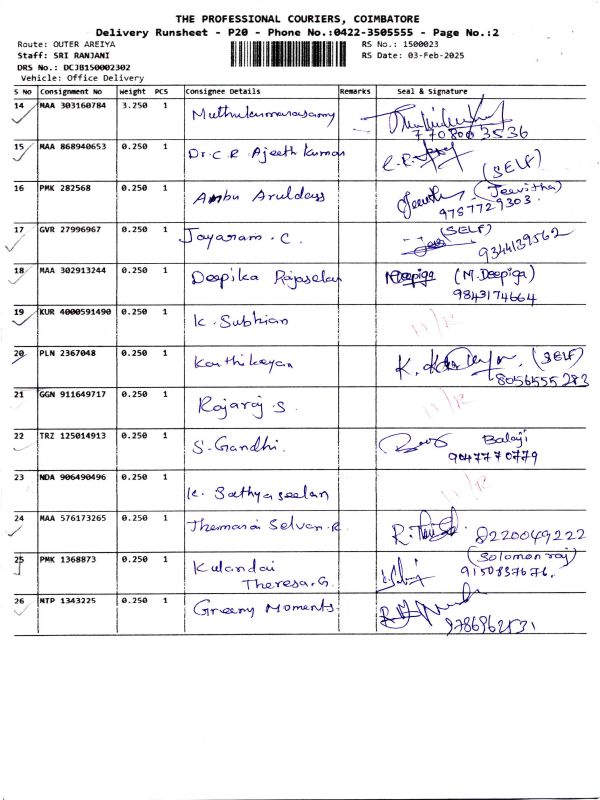 THE PROFESSIONAL COURIERS, COIMBATORE
Delivery Runsheet - P20 - Phone No.:0422-3505555 - Page No.:2
Route: OUTER AREIYA RS No.: 1500023
Staff: SRI RANJANI RS Date: 03-Feb-2025
DRS No.: DCJB150002302
Vehicle: Office Delivery
S No Consignment No Weight PCS Consignee Details Remarks Seal & Signature
14 MAA 303160784 3.250 1 Muthukumarasamy
7708003536
15 MAA 868940653 0.250 1 Dr. C.R Ajeeth Kumar
(SELF)
16 PMK 282568 0.250 1 Anbu Aruldass (Jeevitha)
9787729303.
17 GVR 27996967 0.250 1 Jayaram . C. (SELF)
9344139562
18 MAA 302913244 0.250 1 Deepika Rajaselan (M.Deepiga)
9843174664
19 KUR 4000591490 0.250 1 K. Subbian
20 PLN 2367048 0.250 1 Karthikeyan (SELF)
8056555283
21 GGN 911649717 0.250 1 Rajaraj . S.
22 TRZ 125014913 0.250 1 S. Gandhi. Balaji
9047770779
23 NDA 906490496 0.250 1 K. Sathyaseelan
24 MAA 576173265 0.250 1 Themarai Selvan. R 8220049222
25 PMK 1368873 0.250 1 Kulandai (Solomon raj)
Theresa. G. 9150837676.
26 MTP 1343225 0.250 1 Greeny Moments.
9786962531